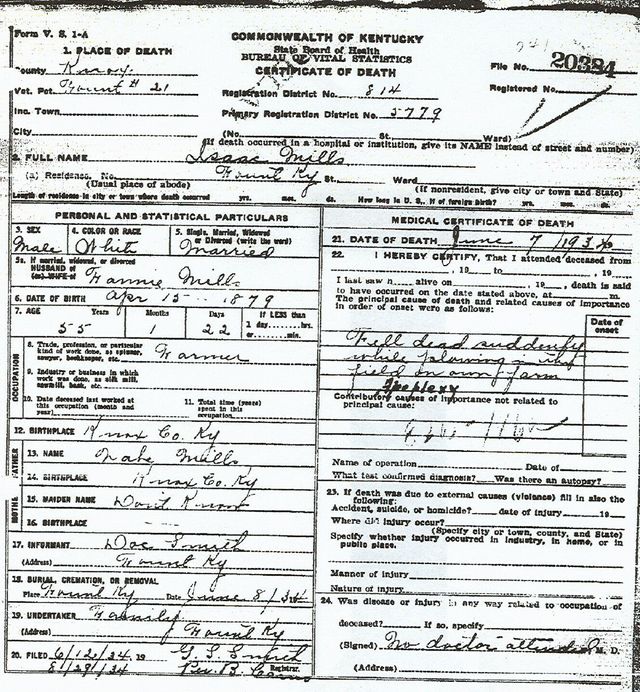 Form V. S. 1-A
COMMONWEALTH OF KENTUCKY
State Board of Health
BUREAU OF VITAL STATISTICS
CERTIFICATE OF DEATH
File No. 20384
Registered No.
1. PLACE OF DEATH
County Knox
Vot. Pct. Fount # 21
Inc. Town
City
Registration District No. 814
Primary Registration District No. 5779
(No. St. Ward)
(If death occurred in a hospital or institution, give its NAME instead of street and number)
2. FULL NAME Isaac Mills
(a) Residence. No. Fount Ky St. Ward
(Usual place of abode) (If nonresident, give city or town and State)
Length of residence in city or town where death occurred yrs. mos. ds. How long in U.S., if of foreign birth? yrs. mos. ds.
PERSONAL AND STATISTICAL PARTICULARS
3. SEX Male
4. COLOR OR RACE White
5. Single, Married, Widowed or Divorced (write the word) Married
5a. If married, widowed, or divorced
HUSBAND of
(or) WIFE of Fannie Mills
6. DATE OF BIRTH Apr 15 1879
7. AGE 55 Years 1 Months 22 Days If LESS than 1 day, hrs. or min.
OCCUPATION
8. Trade, profession, or particular kind of work done, as spinner, sawyer, bookkeeper, etc. Farmer
9. Industry or business in which work was done, as silk mill, sawmill, bank, etc.
10. Date deceased last worked at this occupation (month and year)
11. Total time (years) spent in this occupation
12. BIRTHPLACE Knox Co. Ky
FATHER
13. NAME Mills
14. BIRTHPLACE Knox Co. Ky
MOTHE
15. MAIDEN NAME Dont Know
16. BIRTHPLACE
17. INFORMANT Doc Smith
(Address) Fount Ky
18. BURIAL, CREMATION, OR REMOVAL
Place Fount Ky Date June 8/34 19
19. UNDERTAKER Family
(Address) Fount Ky
20. FILED 6/12/34, 19 G. S. Smith
8/29/34 Registrar.
MEDICAL CERTIFICATE OF DEATH
21. DATE OF DEATH June 7 1934
22. I HEREBY CERTIFY, That I attended deceased from
, 19 to , 19
I last saw h alive on , 19 , death is said
to have occurred on the date stated above, at m.
The principal cause of death and related causes of importance
in order of onset were as follows:
Date of onset
Fell dead suddenly
while plowing in the
field in own farm
Apoplexy
Contributory causes of importance not related to
principal cause:
Name of operation Date of
What test confirmed diagnosis? Was there an autopsy?
23. If death was due to external causes (violence) fill in also the
following:
Accident, suicide, or homicide? date of injury 19
Where did injury occur?
(Specify city or town, county, and State)
Specify whether injury occurred in industry, in home, or in
public place.
Manner of injury
Nature of injury
24. Was disease or injury in any way related to occupation of
deceased? If so, specify
(Signed) No doctor attended M. D.
(Address)